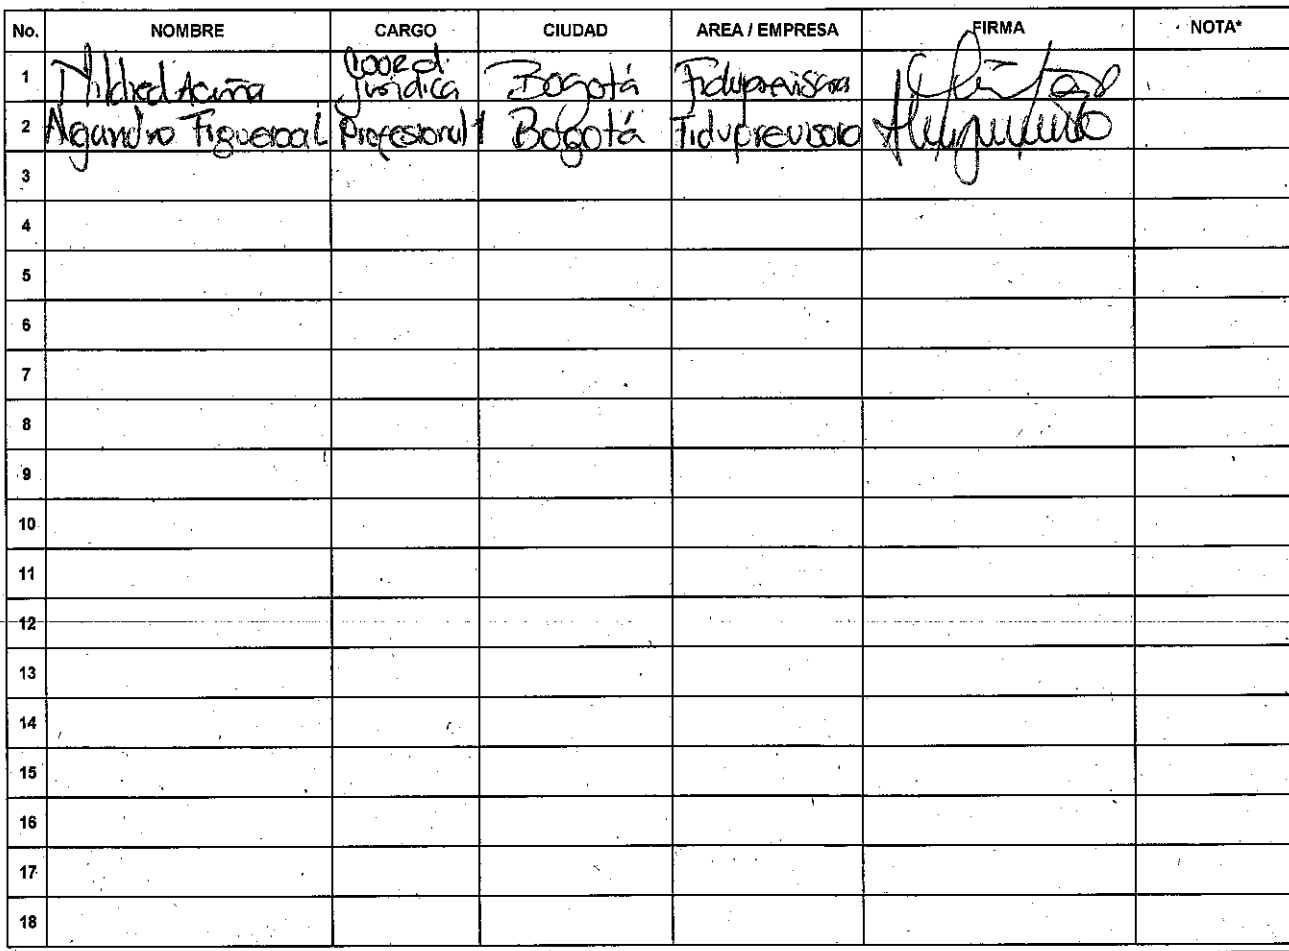 No. NOMBRE CARGO CIUDAD AREA / EMPRESA FIRMA NOTA*
1 Mildred Acuña Coord. Jurídica Bogotá Fiduprevisora
2 Alejandro Figueroa L Profesional 1 Bogotá Fiduprevisora
3
4
5
6
7
8
9
10
11
12
13
14
15
16
17
18